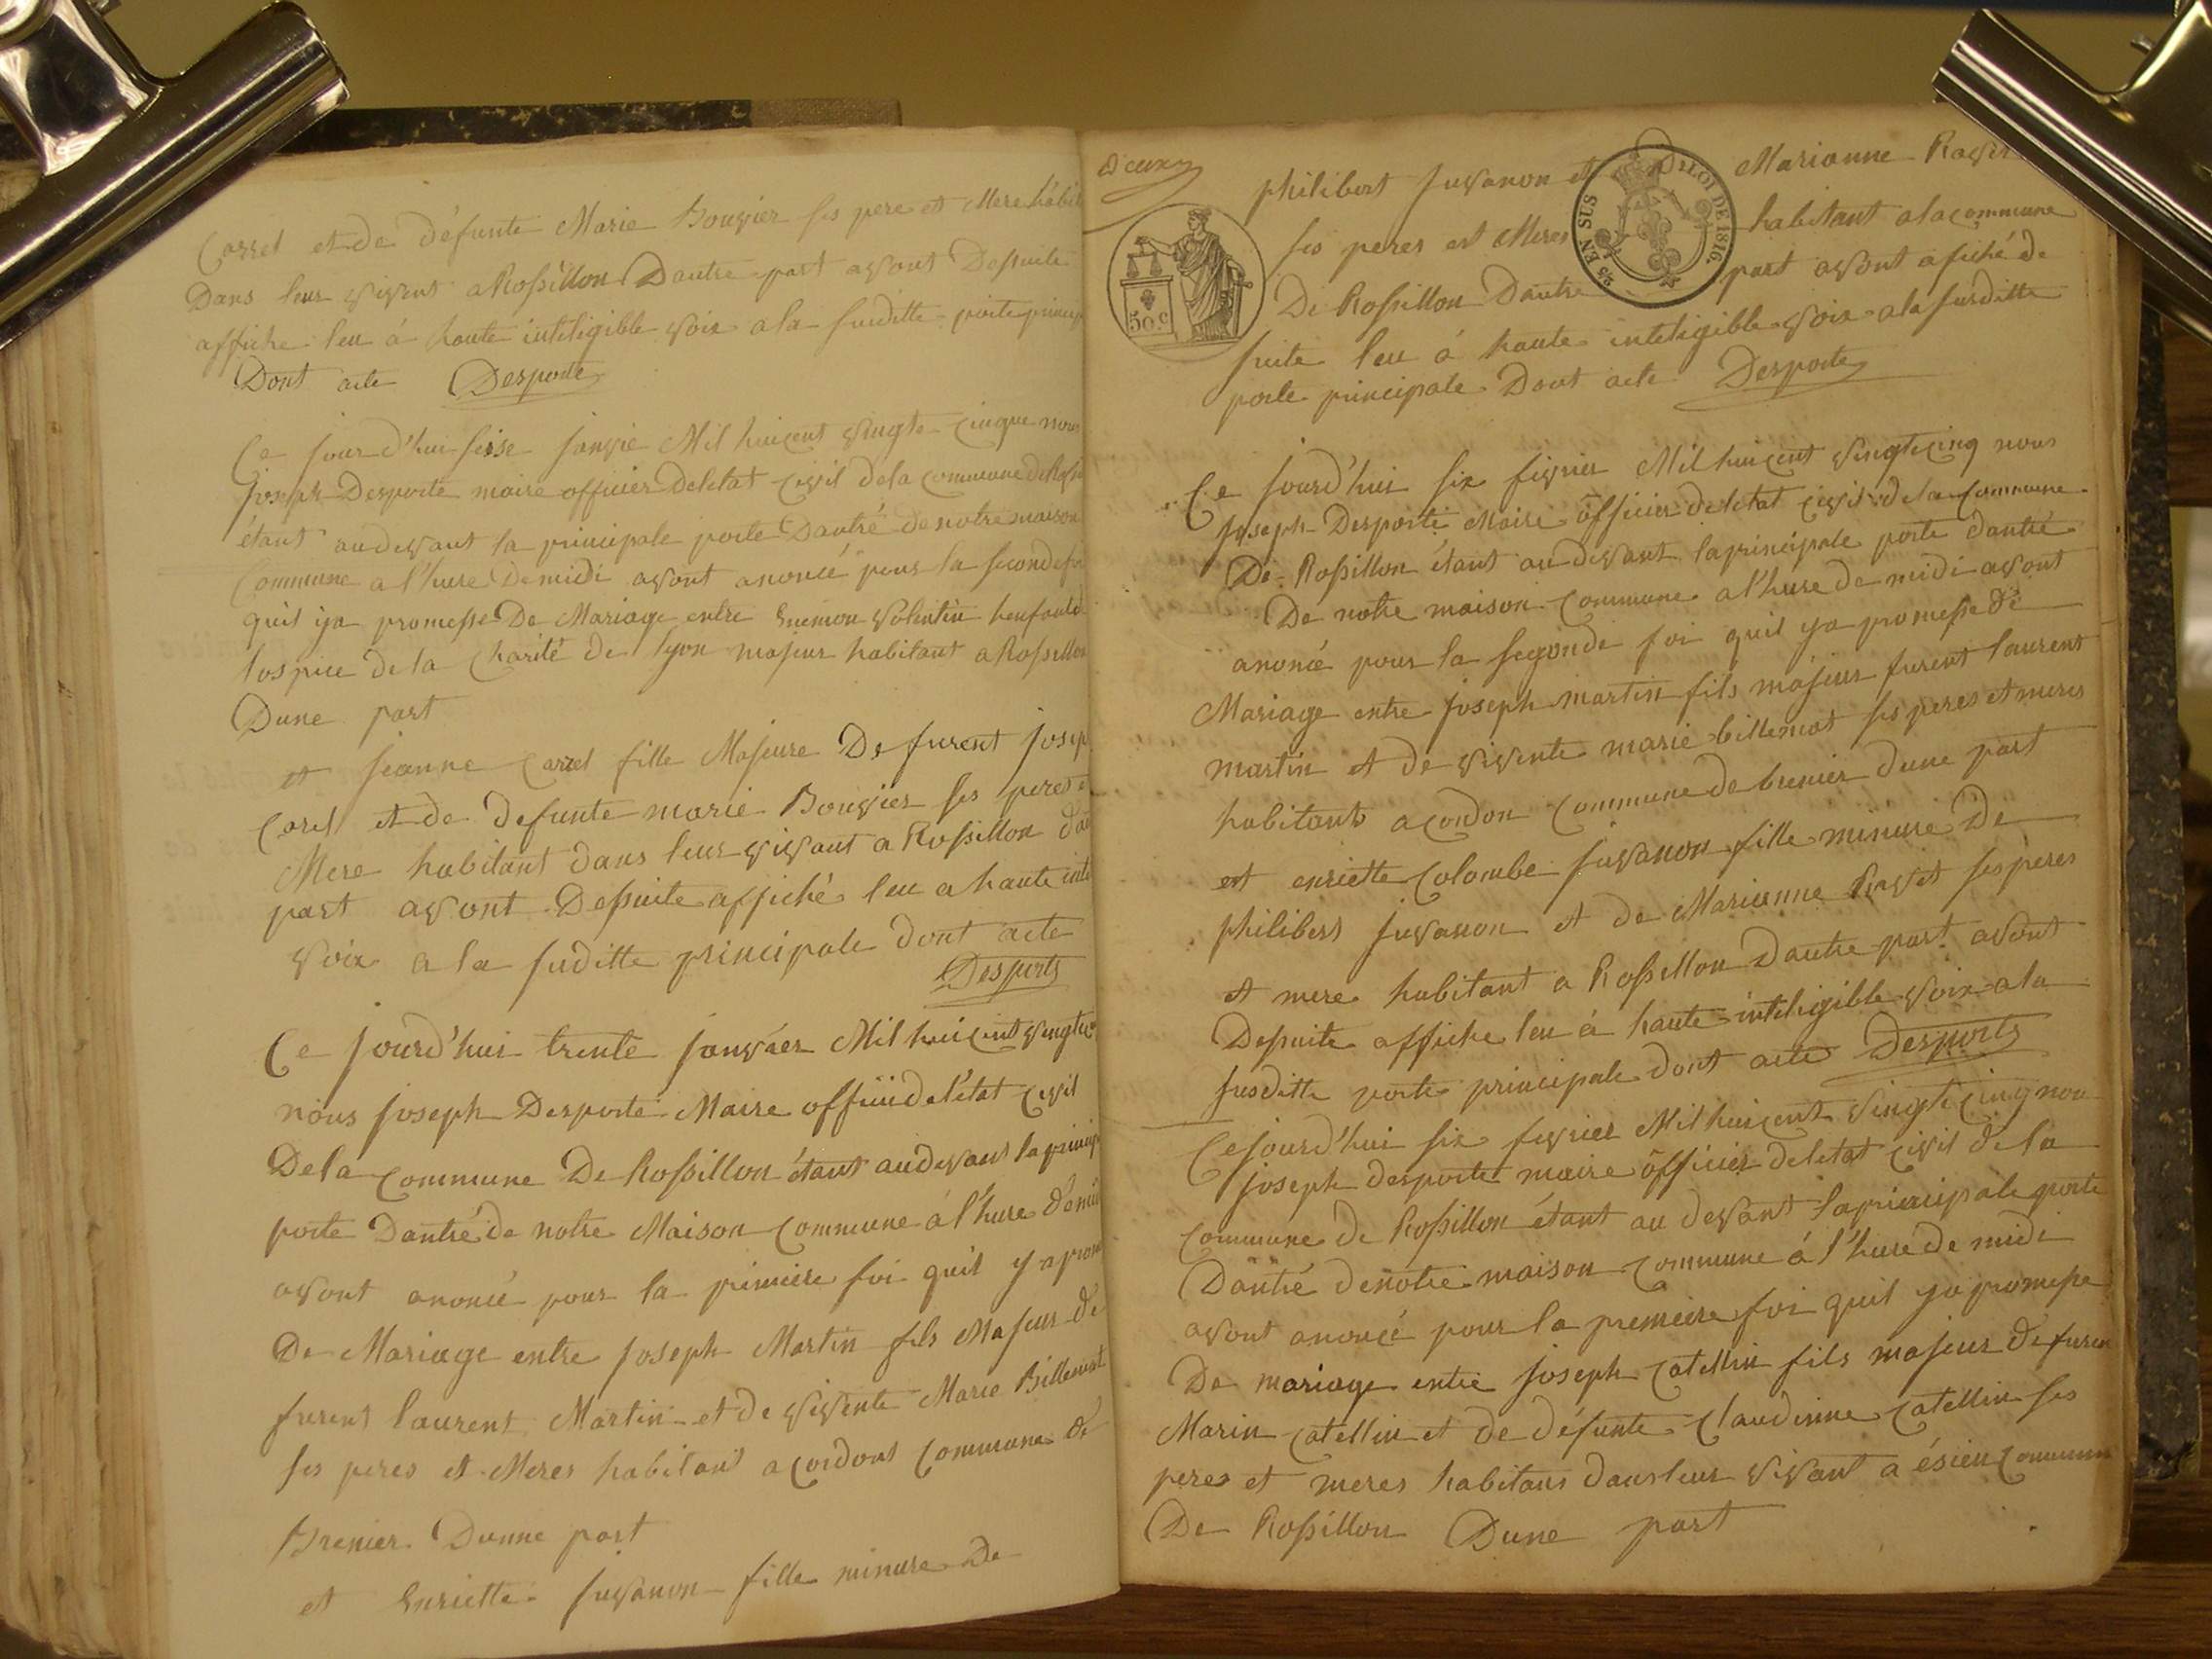 Carrel et de défunte Marie Bouvier ses pere et Mere habit
Dans leur vivent a Rossillon Dautre part avont Dessuite
affiche leu á haute inteligible voix a la suditte porte princip
Dont acte Desporte
Ce jour d'hui seise janvie Mil huicent vingte cinque nous
joseph Desporte maire officier deletat civil dela commune deRossi
étant audevant la principale porte Dautré de notre maison
Commune a l'hure De midi avont anoncé pour la seconde foi
quil iya promesse De Mariage entre Enemon Volentin henfant d
lospice de la Charité de lyon majeur habitant a Rossillon
Dune part
et jeanne Carel fille Majeure De furent josep
Carel et de Defunte marie Bouvier ses peres e
Mere habitant dans leur vivant a Rossillon dau
part avont Dessuite affiché leu a haute inte
voix a la suditte principale dont acte
Desporte
Ce jourd'hui trente janvier Mil huicent vingt
nous joseph Desporte Maire officie deletat civil
De la commune De Rossillon étant audevant la princip
porte Dantré de notre Maison commune á l'hure démidi
avont anoncé pour la pimiere foi quil y a prom
De Mariage entre joseph Martin fils Majeur de
furent laurent Martin et de vivente Marie Billemat
ses peres et Meres habitant a Cordont commune de
Brenier Dunne part
et Enriette juvanon fille minure De
Deux
philibert juvanon et Marianne Ravet
ses peres et Meres habitant a la commune
De Rossillon Dautre part avont afiché de
suite leu á haute inteligible voix a la surditte
porte principale Dont acte Desporte
50 c
2/5 EN SUS
LOI DE 1816.
Ce jourd'hui six fivrier Mil huicent vingtcinq nous
joseph Desporte Maire officier deletat civil de la commune
De Rossillon étant audevant la principale porte dantré
De notre maison commune a l'hure de midi avont
anoncé pour la segonde foi quil ya promesse de
Mariage entre joseph martin fils majeur furent laurent
martin et de vivente marie billemat ses peres et meres
habitant a Cordon commune de brenier dune part
et enriette Colombe juvanon fille minure De
philibert juvanon et de Marienne Ravet ses peres
et mere habitant a Rossillon Dautre part avont
Dessuite affiche leu á haute inteligible voix a la
susditte porte principale dont acte Desporte
Cejourd'hui six fevrier Mil huicent vingt cinq nou
joseph desporte maire officier deletat civil de la
commune de Rossillon étant au devant la principale porte
Dantré denotre maison commune á l'hure de midi
avont anoncé pour la premeire foi quil ya promesse
De mariage entre joseph Catellin fils majeur de furen
Marin Catellin et de défunte Claudinne Catellin ses
peres et meres habitans dans leur vivant a ésieu commun
De Rossillon Dune part